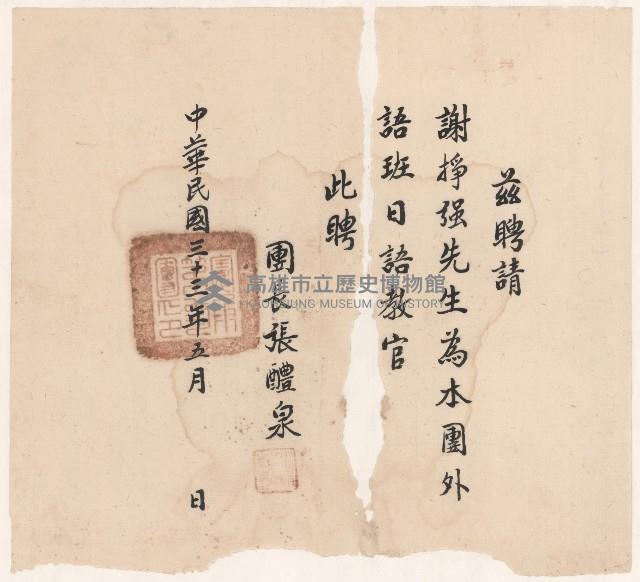 茲聘請
謝掙强先生為本團外
語班日語教官
此聘
團長張醴泉
中華民國三十三年五月 日
高雄市立歷史博物館
KAOHSIUNG MUSEUM OF HISTORY